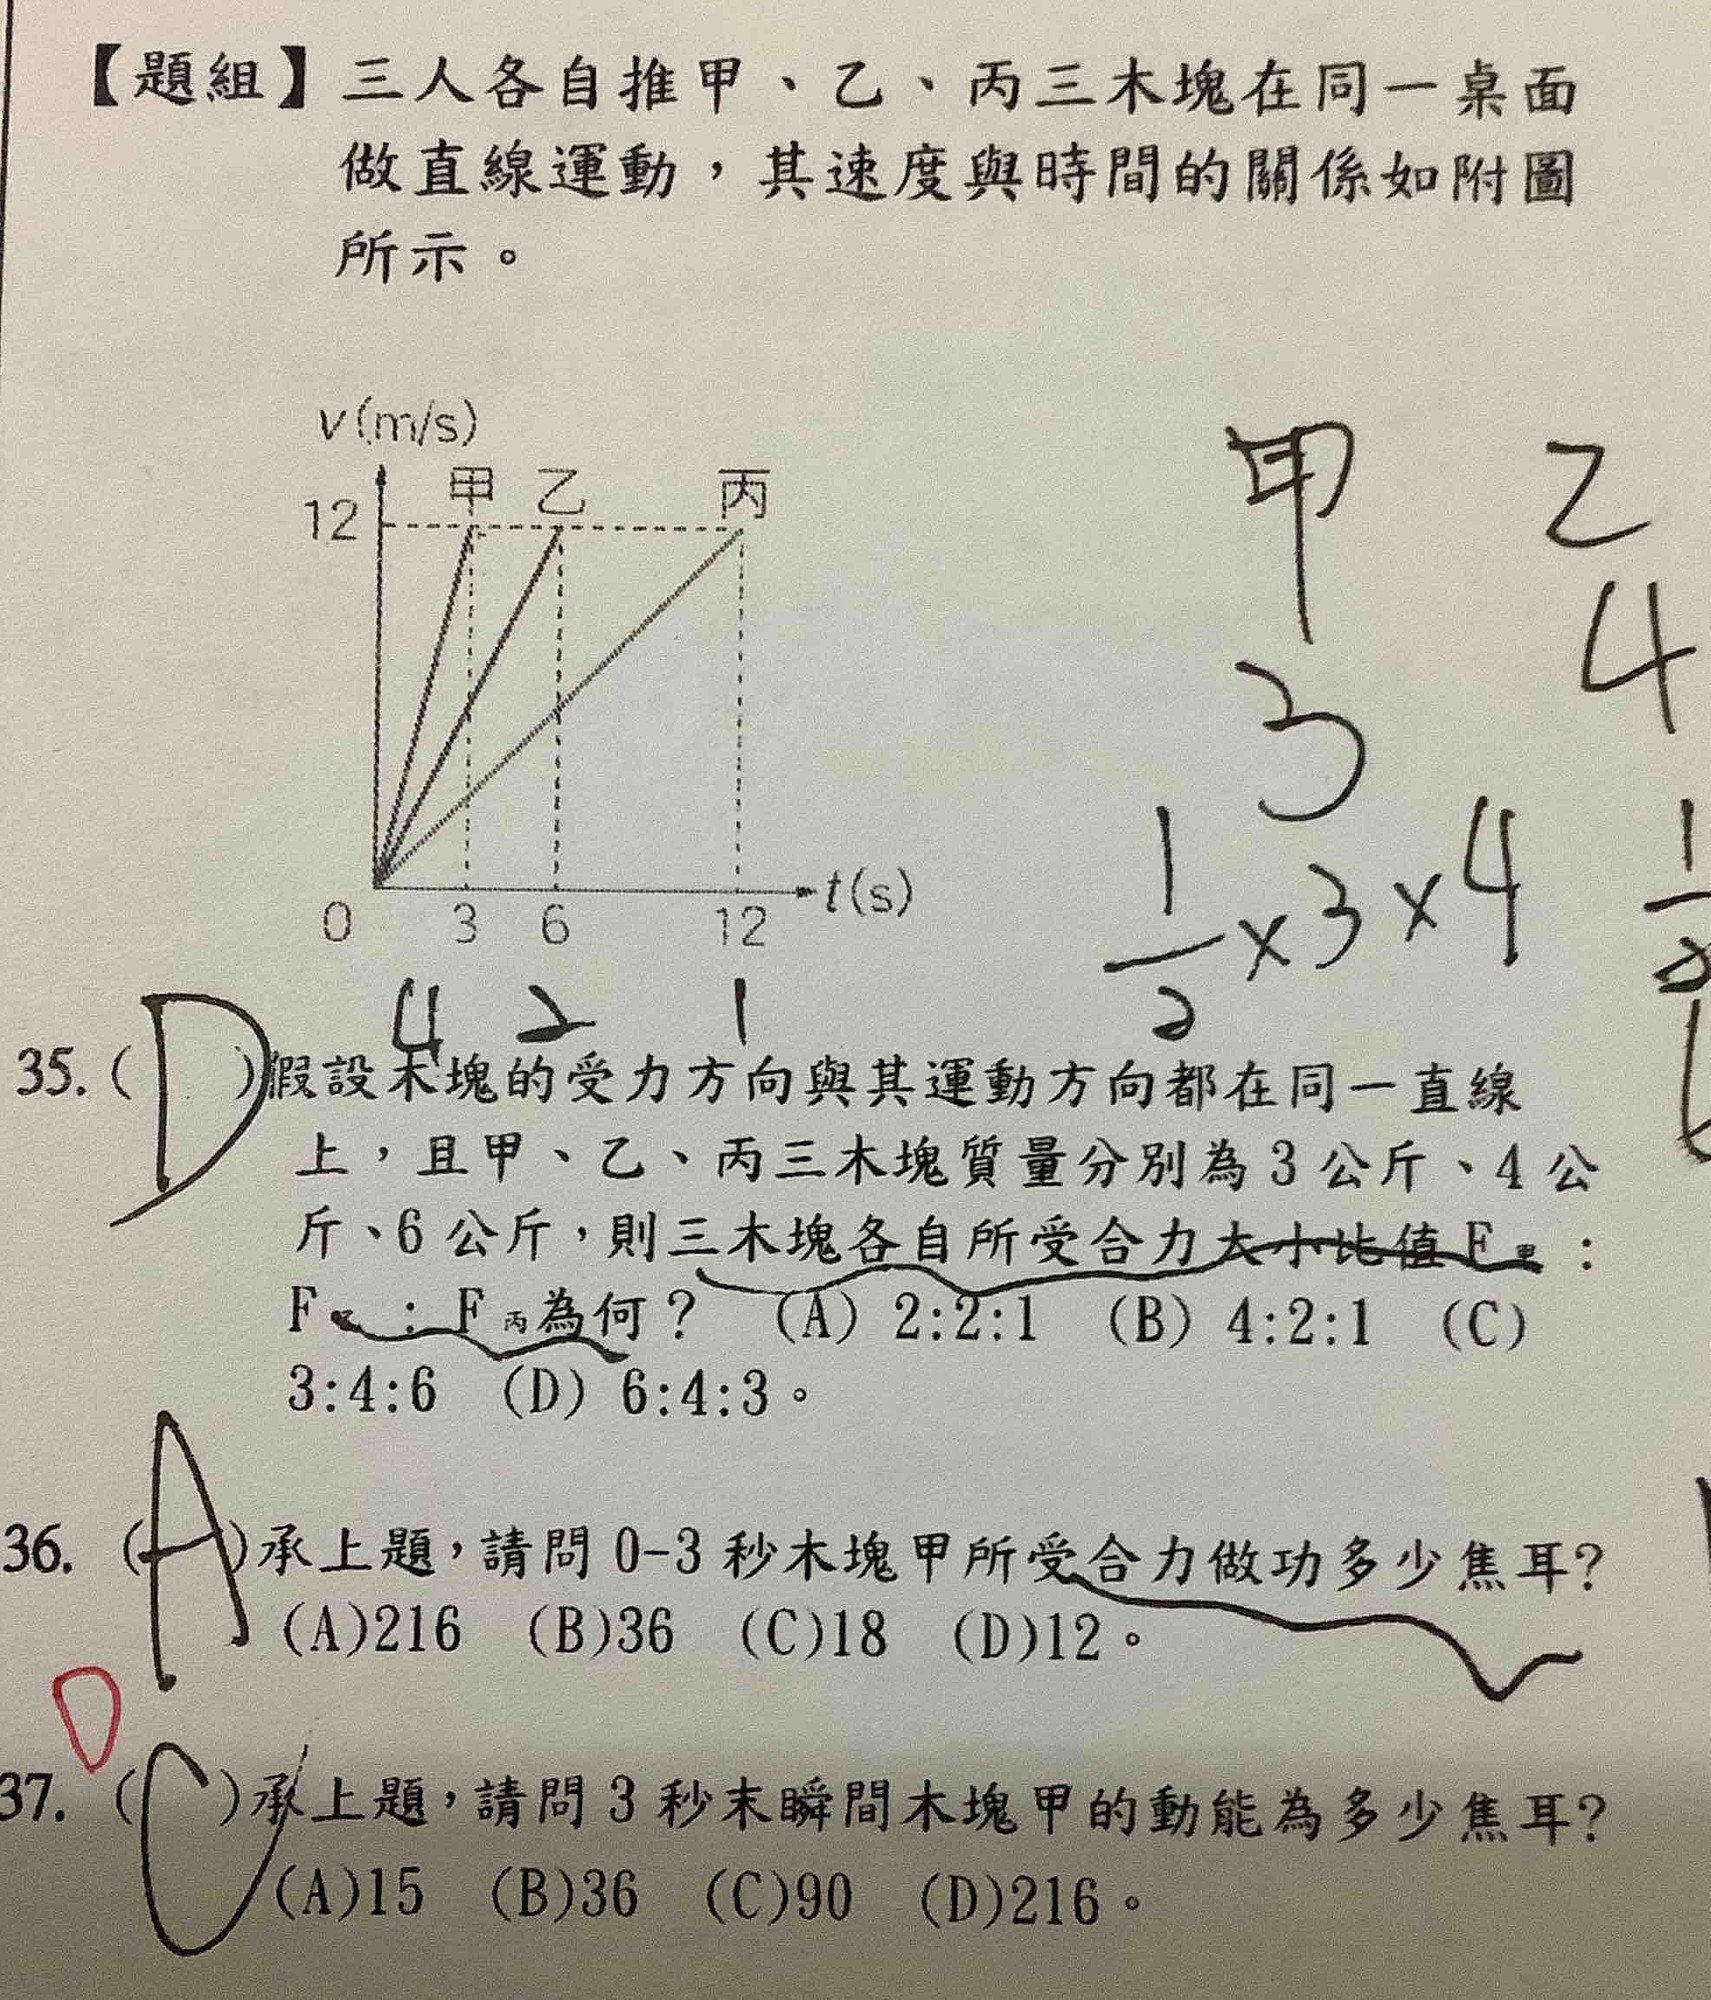 【題組】三人各自推甲、乙、丙三木塊在同一桌面
做直線運動，其速度與時間的關係如附圖
所示。
v(m/s)
甲 乙 丙
12
0 3 6 12 t(s)
4 2 1
甲 乙
3 4
1/2 × 3 × 4
35. (D)假設木塊的受力方向與其運動方向都在同一直線
上，且甲、乙、丙三木塊質量分別為 3 公斤、4 公
斤、6 公斤，則三木塊各自所受合力大小比值 F甲：
F乙：F丙為何？ (A) 2:2:1 (B) 4:2:1 (C)
3:4:6 (D) 6:4:3。
36. (A)承上題，請問 0-3 秒木塊甲所受合力做功多少焦耳?
(A)216 (B)36 (C)18 (D)12。
D
37. (C)承上題，請問 3 秒末瞬間木塊甲的動能為多少焦耳?
(A)15 (B)36 (C)90 (D)216。